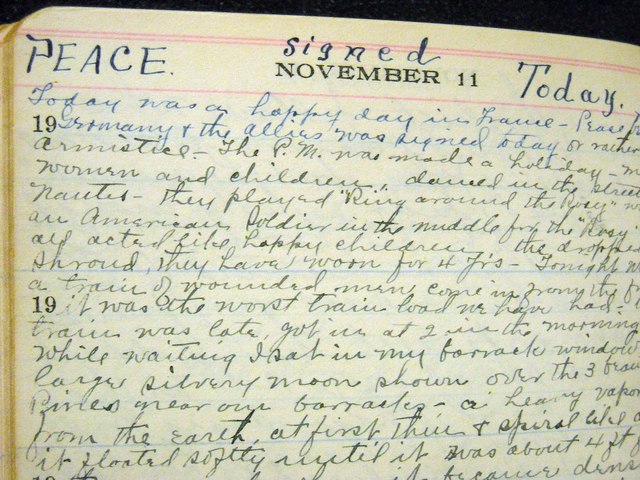 PEACE. signed Today.
NOVEMBER 11
Today was a happy day in France - Peace
19 Germany & the allies was signed today or rather
armistice - The P.M. was made a holiday -
women and children danced in the stree
Nantes - they played "Ring around the Rosy"
an American soldier in the middle for the "Rosy"
all acted like happy children the droppe
shroud, they have worn for 4 yrs - Tonight
a train of wounded men come in from the
19 it was the worst train load we have had -
train was late, got in at 2 in the morning
while waiting I sat in my barrack window
large silvery moon shown over the 3
Pines near our barracks - a heavy vapor
from the earth, at first thin & spiral like
it floated softly until it was about 4 ft
it became dens